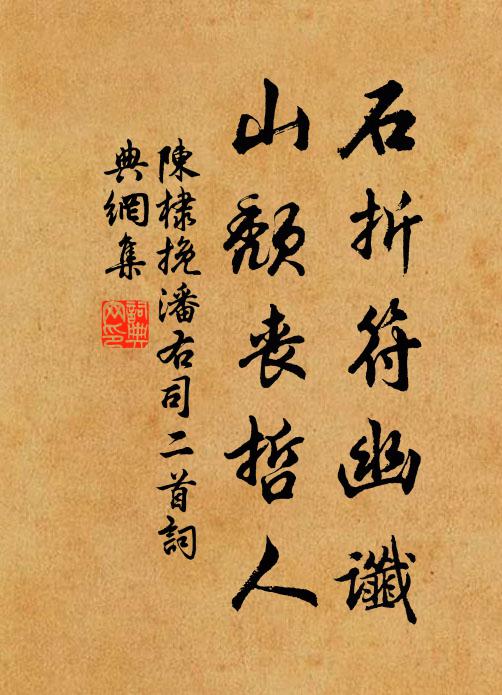 石折符幽讖
山頹喪哲人
陳棣挽潘右司二首詞
典網集
詞典
网印